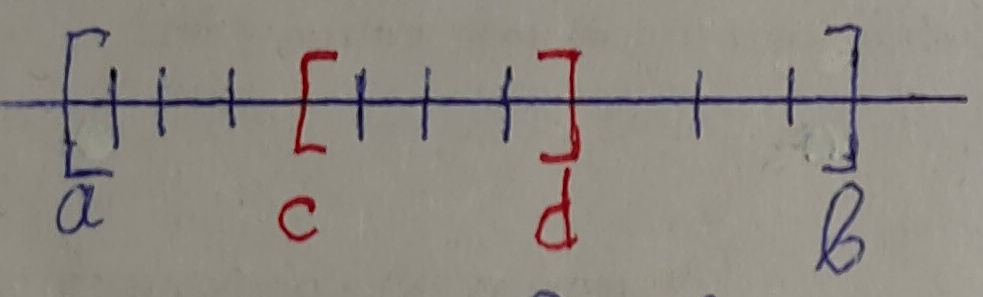 [ [ ] ]
a c d b